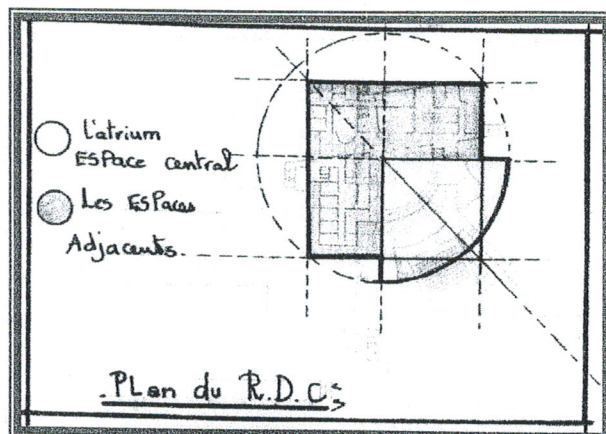 L'atrium
ESPace central
Les ESPaces
Adjacents.
.PLan du R.D.C: